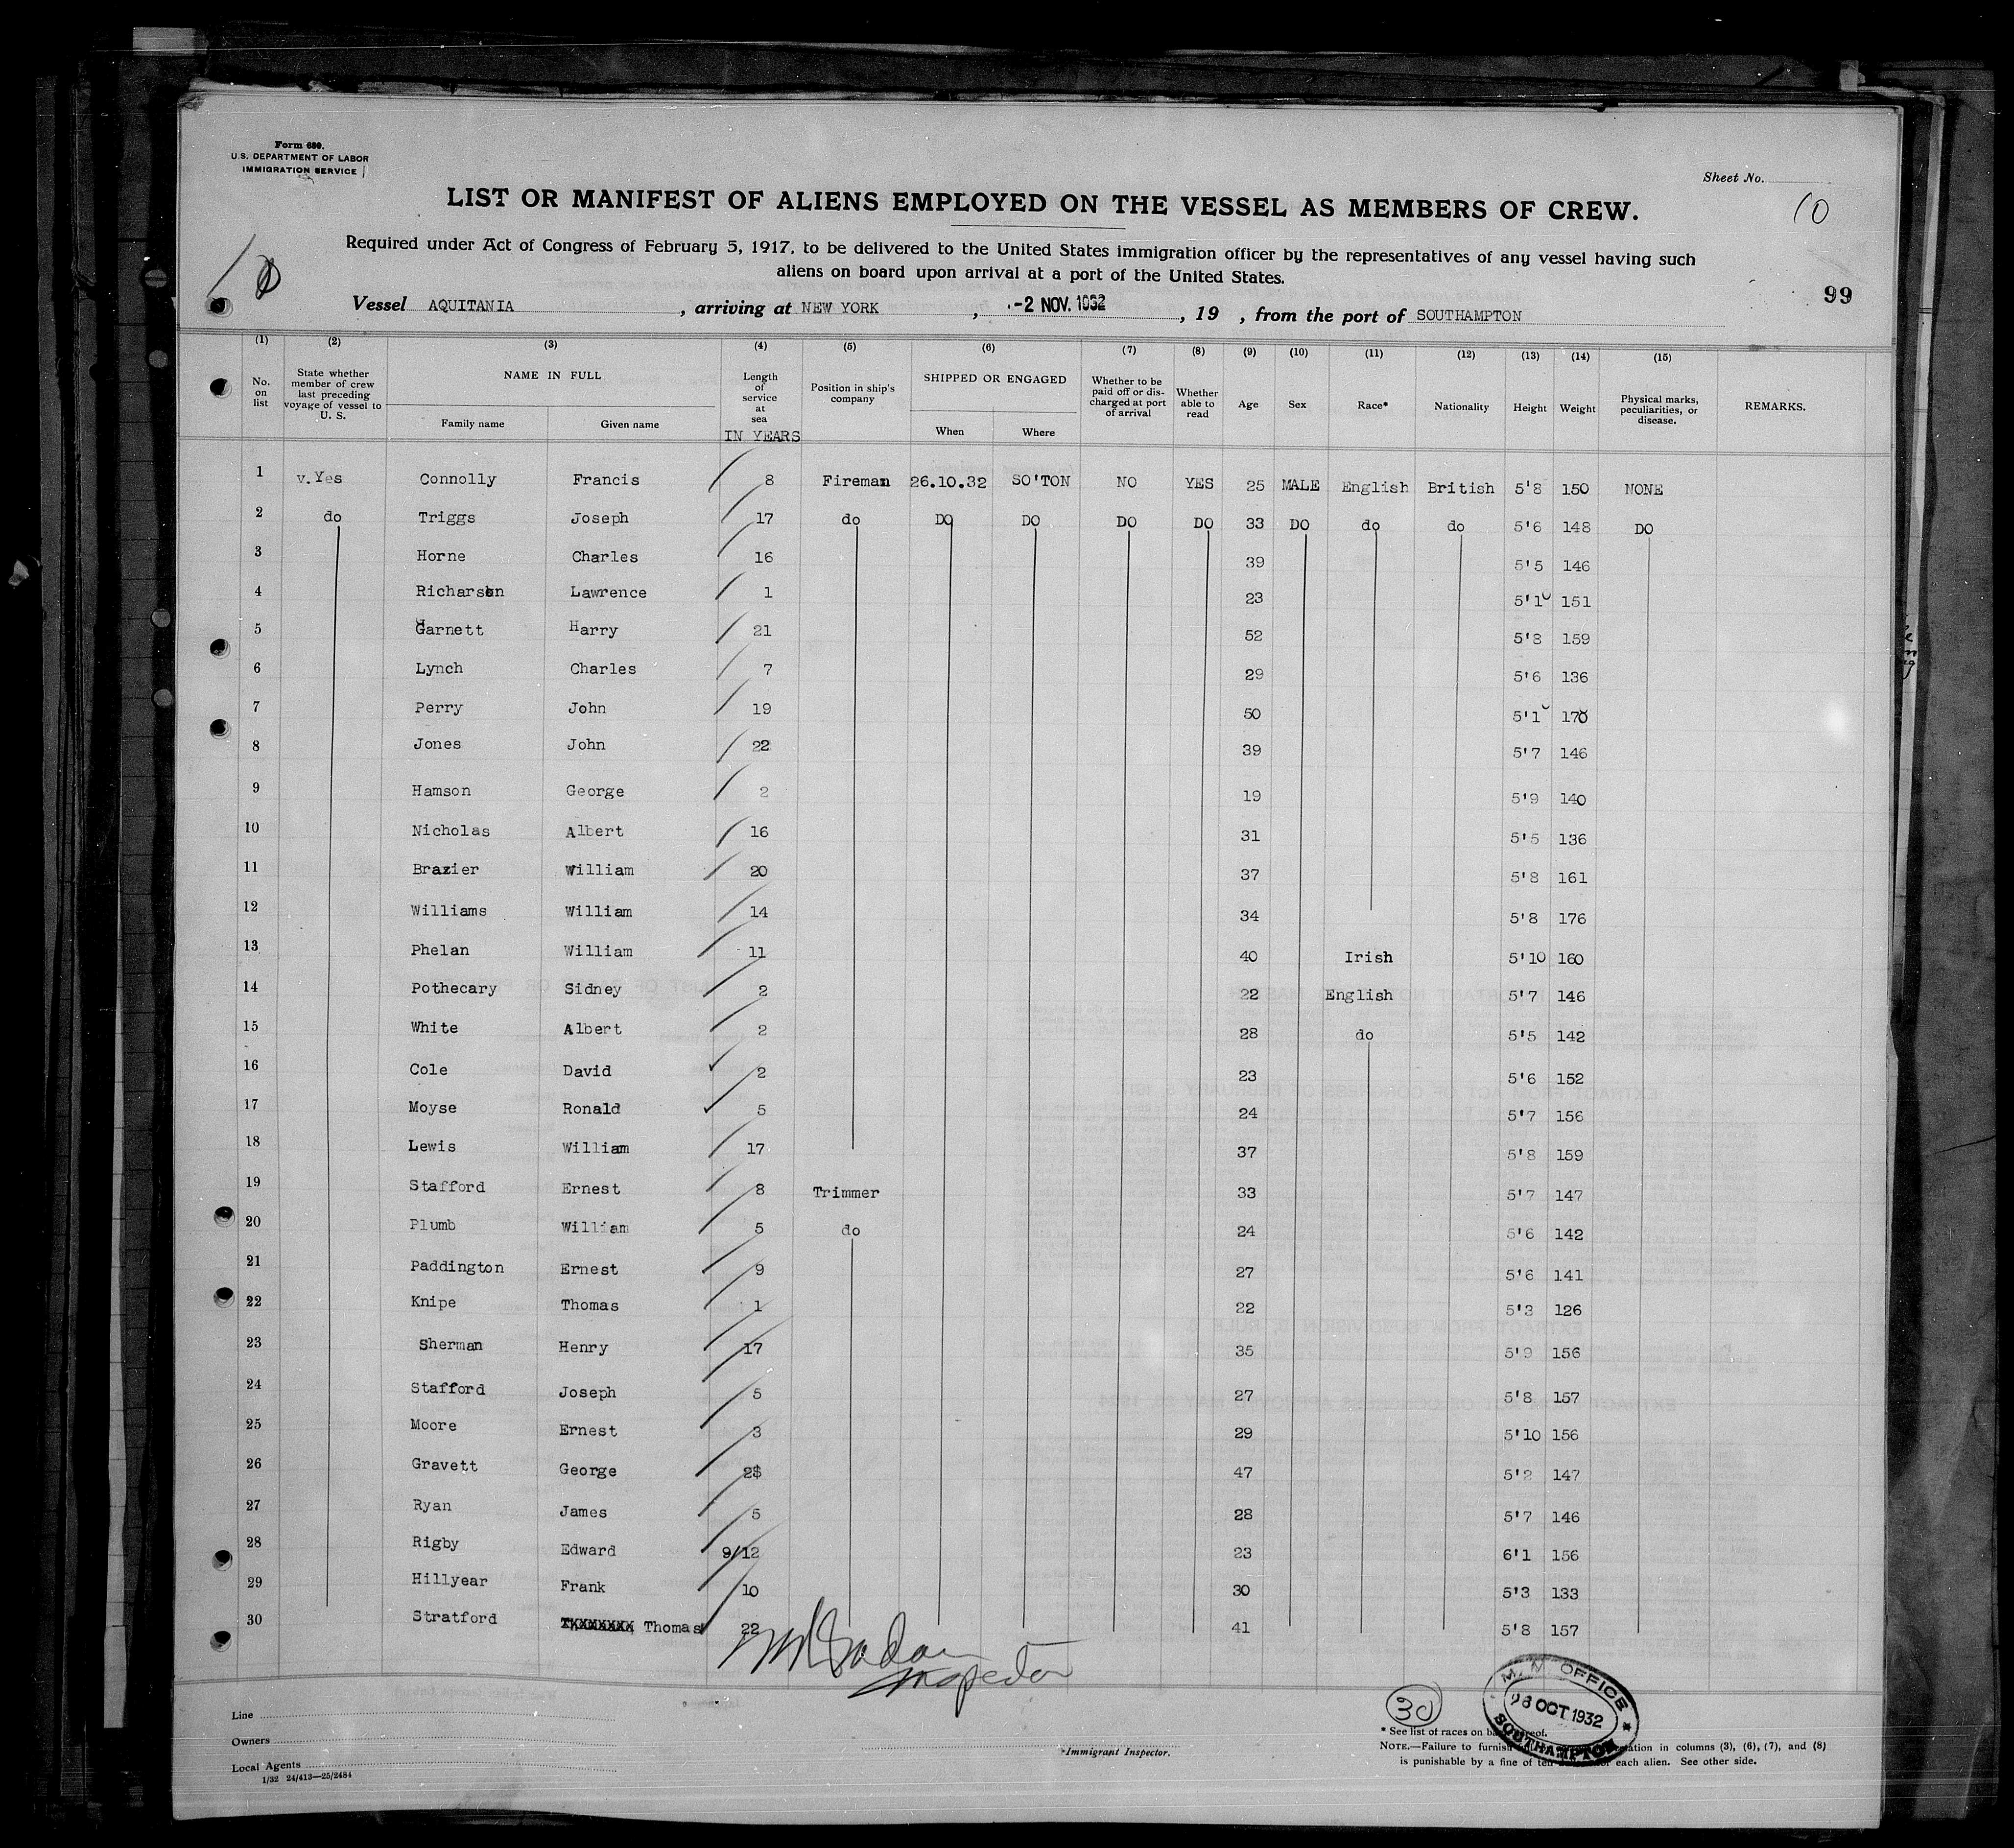 Form 680.
U.S. DEPARTMENT OF LABOR
IMMIGRATION SERVICE
Sheet No.
10
LIST OR MANIFEST OF ALIENS EMPLOYED ON THE VESSEL AS MEMBERS OF CREW.
Required under Act of Congress of February 5, 1917, to be delivered to the United States immigration officer by the representatives of any vessel having such
aliens on board upon arrival at a port of the United States.
99
Vessel AQUITANIA, arriving at NEW YORK, -2 NOV. 1932, 19 , from the port of SOUTHAMPTON
(1) (2) (3) (4) (5) (6) (7) (8) (9) (10) (11) (12) (13) (14) (15)
No. on list
State whether member of crew last preceding voyage of vessel to U. S.
NAME IN FULL
Family name Given name
Length of service at sea
IN YEARS
Position in ship's company
SHIPPED OR ENGAGED
When Where
Whether to be paid off or discharged at port of arrival
Whether able to read
Age Sex Race* Nationality Height Weight
Physical marks, peculiarities, or disease.
REMARKS.
1 v.Yes Connolly Francis 8 Fireman 26.10.32 SO'TON NO YES 25 MALE English British 5'8 150 NONE
2 do Triggs Joseph 17 do DO DO DO DO 33 DO do do 5'6 148 DO
3 Horne Charles 16 39 5'5 146
4 Richarson Lawrence 1 23 5'10 151
5 Garnett Harry 21 52 5'8 159
6 Lynch Charles 7 29 5'6 136
7 Perry John 19 50 5'10 170
8 Jones John 22 39 5'7 146
9 Hamson George 2 19 5'9 140
10 Nicholas Albert 16 31 5'5 136
11 Brazier William 20 37 5'8 161
12 Williams William 14 34 5'8 176
13 Phelan William 11 40 Irish 5'10 160
14 Pothecary Sidney 2 22 English 5'7 146
15 White Albert 2 28 do 5'5 142
16 Cole David 2 23 5'6 152
17 Moyse Ronald 5 24 5'7 156
18 Lewis William 17 37 5'8 159
19 Stafford Ernest 8 Trimmer 33 5'7 147
20 Plumb William 5 do 24 5'6 142
21 Paddington Ernest 9 27 5'6 141
22 Knipe Thomas 1 22 5'3 126
23 Sherman Henry 17 35 5'9 156
24 Stafford Joseph 5 27 5'8 157
25 Moore Ernest 3 29 5'10 156
26 Gravett George 47 5'2 147
27 Ryan James 5 28 5'7 146
28 Rigby Edward 9/12 23 6'1 156
29 Hillyear Frank 10 30 5'3 133
30 Stratford Thomas 22 41 5'8 157
Inspector
Line
Owners
Local Agents
1/32 24/413—25/2484
*Immigrant Inspector.
30
M. M. OFFICE
28 OCT 1932
SOUTHAMPTON
* See list of races on back hereof.
NOTE.—Failure to furnish in columns (3), (6), (7), and (8)
is punishable by a fine of ten each alien. See other side.